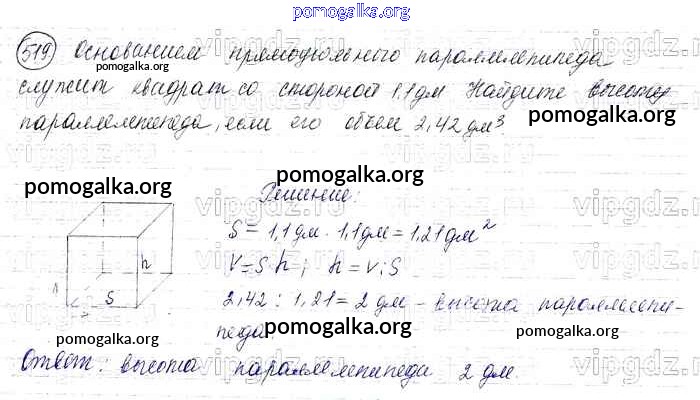 pomogalka.org
519 Основанием прямоугольного параллелепипеда
pomogalka.org
служит квадрат со стороной 1,1 дм Найдите высоту
параллелепипеда, если его объем 2,42 дм³.
pomogalka.org
pomogalka.org
Решение:
pomogalka.org
S = 1,1 дм · 1,1 дм = 1,21 дм²
h
V = S h; h = V : S
S
2,42 : 1,21 = 2 дм - высота параллелепи-
педа.
pomogalka.org
pomogalka.org
pomogalka.org
Ответ: высота параллелепипеда 2 дм.
pomogalka.org